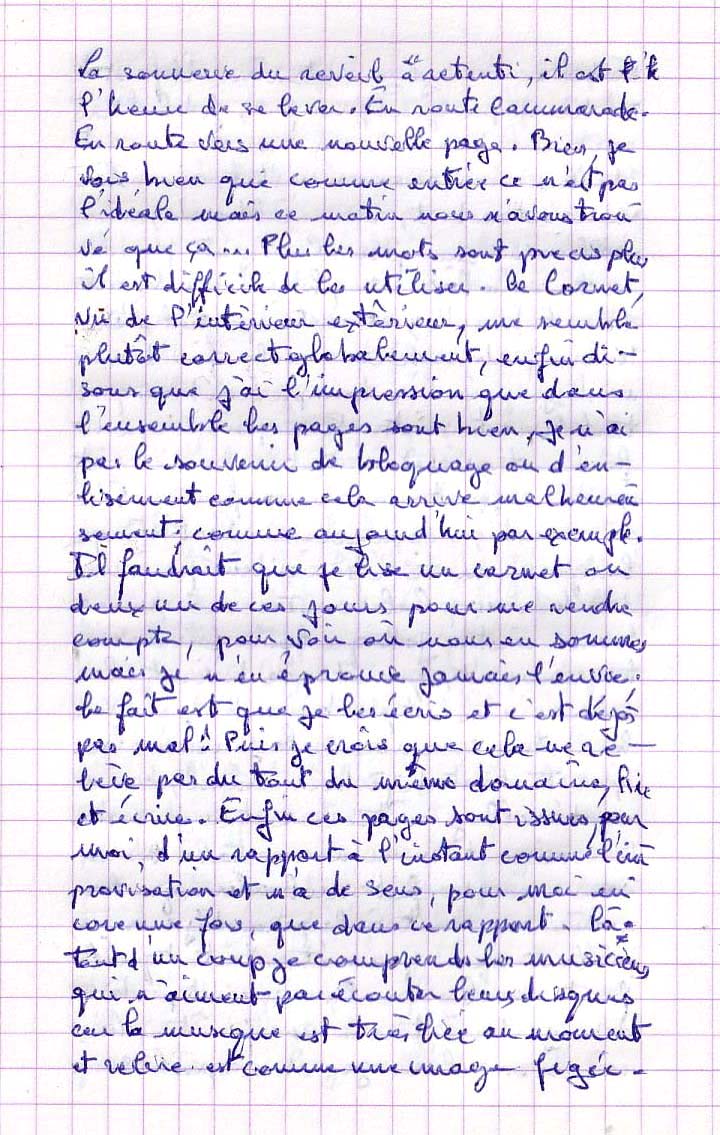 La sonnerie du réveil a retenti, il est
l'heure de se lever. En route camarade.
En route vers une nouvelle page. Bien, je
vois bien que comme entrée ce n'est pas
l'idéale mais ce matin nous n'avons trou
vé que ça... Plus les mots sont précis plus
il est difficile de les utiliser. Le Carnet,
vu de l'intérieur extérieur, me semble
plutôt correct globalement, enfin di-
sons que j'ai l'impression que dans
l'ensemble les pages sont bien, je n'ai
pas le souvenir de bloquage ou d'en-
lisement comme cela arrive malheureu
sement, comme aujourd'hui par exemple.
Il faudrait que je lise un carnet ou
deux un de ces jours pour me rendre
compte, pour voir où nous en sommes,
mais je n'en éprouve jamais l'envie.
Le fait est que je les écris et c'est déjà
pas mal! Puis je crois que cela ne re-
lève pas du tout du même domaine, lire
et écrire. Enfin ces pages sont issues, pour
moi, d'un rapport à l'instant comme l'im
provisation et n'a de sens, pour moi en
core une fois, que dans ce rapport. Là
tout d'un coup je comprends les musiciens
qui n'aiment pas écouter leurs disques
car la musique est très liée au moment
et relire est comme une image figée.